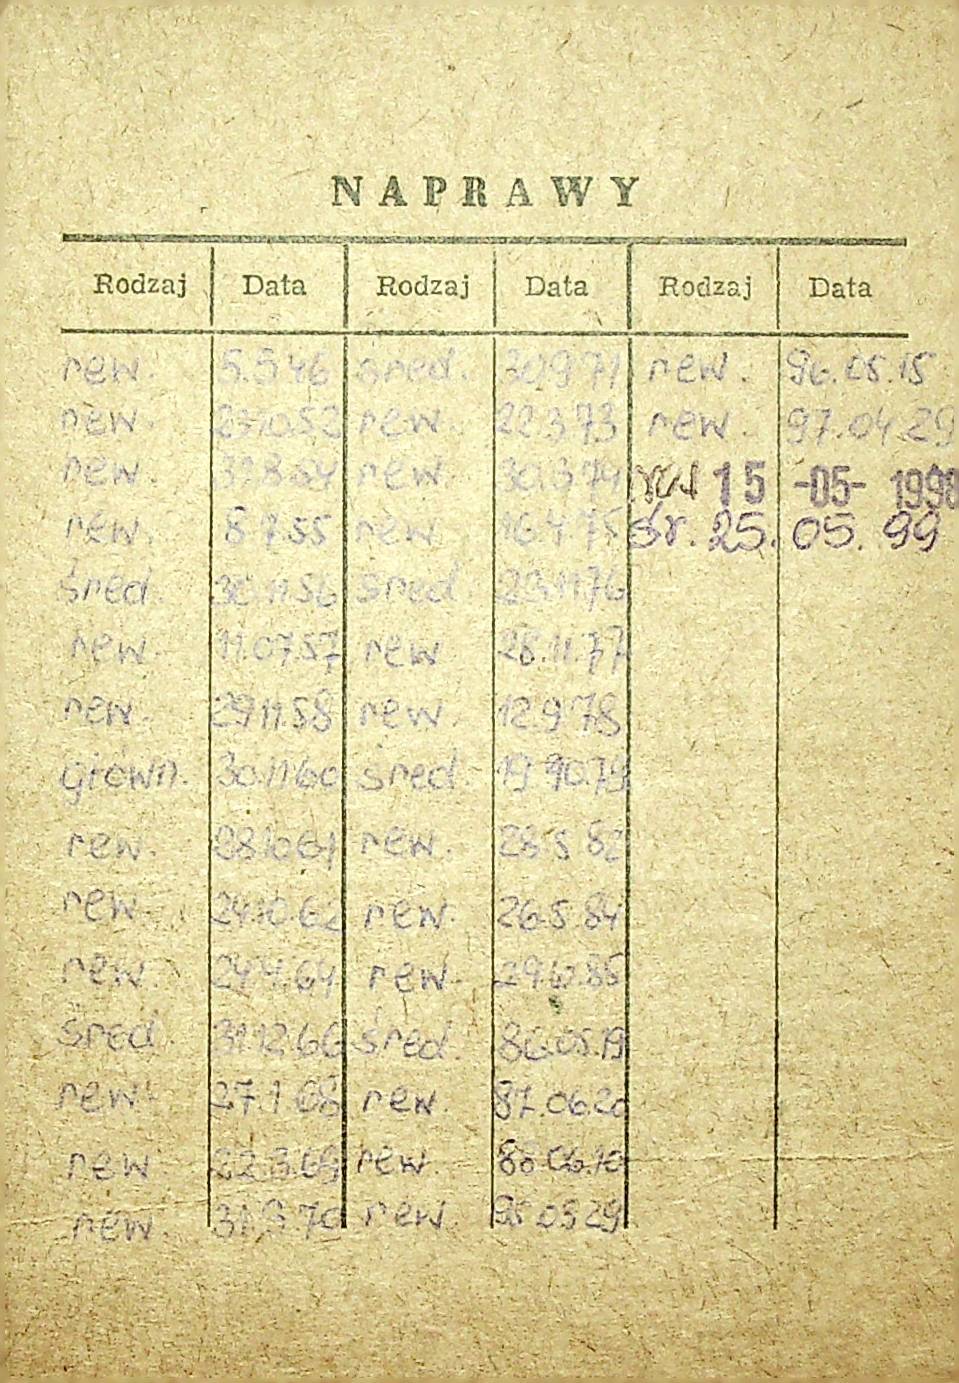 NAPRAWY
Rodzaj Data Rodzaj Data Rodzaj Data
rew. 5.5.46 śred. 30.9.71 rew. 96.05.15
rew. 23.10.52 rew. 22.3.73 rew. 97.04.29
rew. 31.8.54 rew. 30.3.74 rew 15 -05- 1998
rew. 8.7.55 rew 16.4.75 śr. 25. 05. 99
śred. 30.11.56 śred 23.11.76
rew. 11.07.57 rew 28.11.77
rew. 29.11.58 rew. 12.9.78
główn. 30.11.60 śred. 19
rew. 28.10.61 rew. 28.5.82
rew 24.10.62 rew. 26.5.84
rew. 24.4.64 rew. 29.6.85
śred 31.12.66 śred. 86.05.19
rew. 27.1.68 rew. 87.06.20
rew 22.3.69 rew. 88.06.10
rew. 31.3.70 rew. 95.05.29